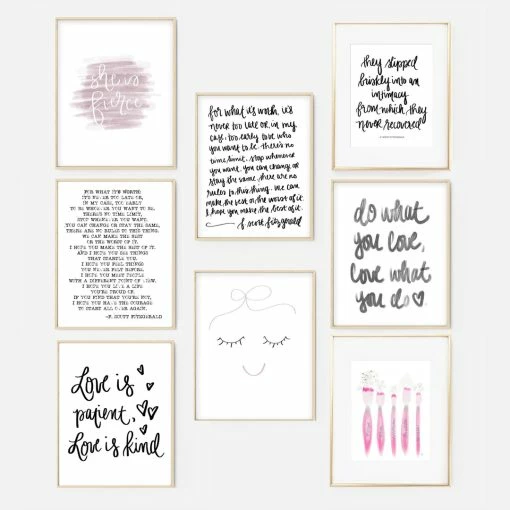 she is
fierce
FOR WHAT IT'S WORTH:
IT'S NEVER TOO LATE OR,
IN MY CASE, TOO EARLY
TO BE WHOEVER YOU WANT TO BE.
THERE'S NO TIME LIMIT,
STOP WHENEVER YOU WANT.
YOU CAN CHANGE OR STAY THE SAME,
THERE ARE NO RULES TO THIS THING.
WE CAN MAKE THE BEST
OR THE WORST OF IT.
I HOPE YOU MAKE THE BEST OF IT.
AND I HOPE YOU SEE THINGS
THAT STARTLE YOU.
I HOPE YOU FEEL THINGS
YOU NEVER FELT BEFORE.
I HOPE YOU MEET PEOPLE
WITH A DIFFERENT POINT OF VIEW.
I HOPE YOU LIVE A LIFE
YOU'RE PROUD OF.
IF YOU FIND THAT YOU'RE NOT,
I HOPE YOU HAVE THE COURAGE
TO START ALL OVER AGAIN.
-F. SCOTT FITZGERALD
Love is
patient,
Love is kind
for what it's worth, it's
never too late or, in my
case, too early to be who
you want to be. there's no
time limit. stop whenever
you want. you can change or
stay the same. there are no
rules to this thing. we can
make the best or the worst of it.
I hope you make the best of it.
f. scott fitzgerald
they slipped
briskly into an
intimacy
from which they
never recovered
do what
you love,
love what
you do